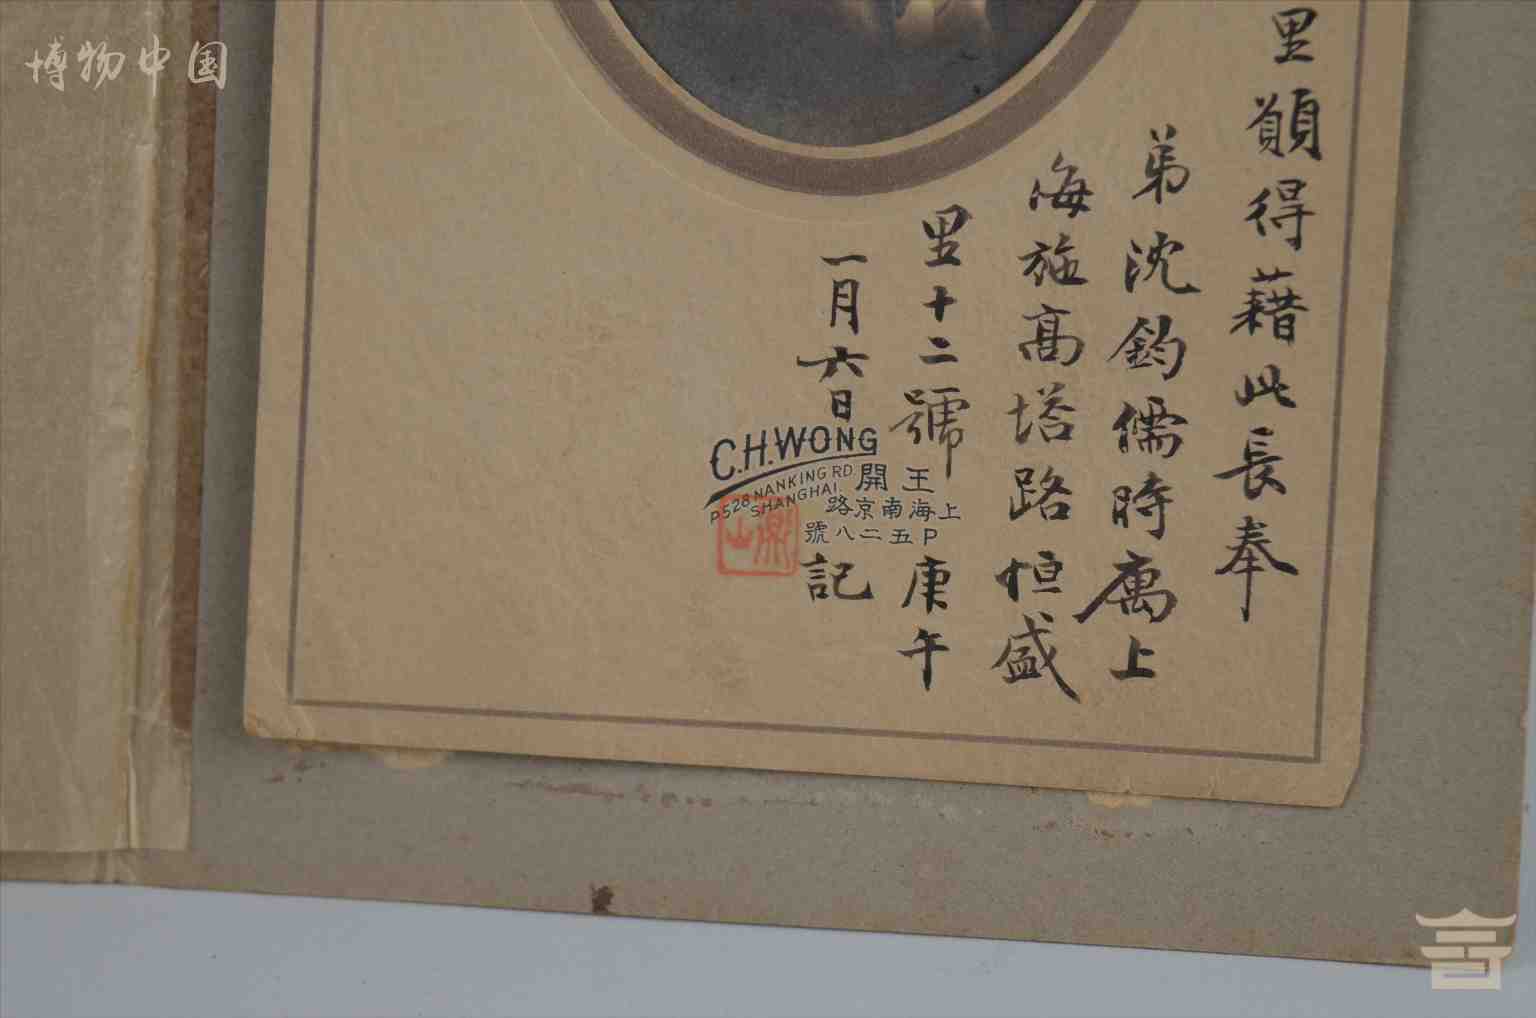 博物中国
里願得藉此長奉
弟沈鈞儒時寓上
海施高塔路恒盛
里十二號庚午
一月六日記
C.H.WONG
P528 NANKING RD.
SHANGHAI.
王開
上海南京路
P五二八號